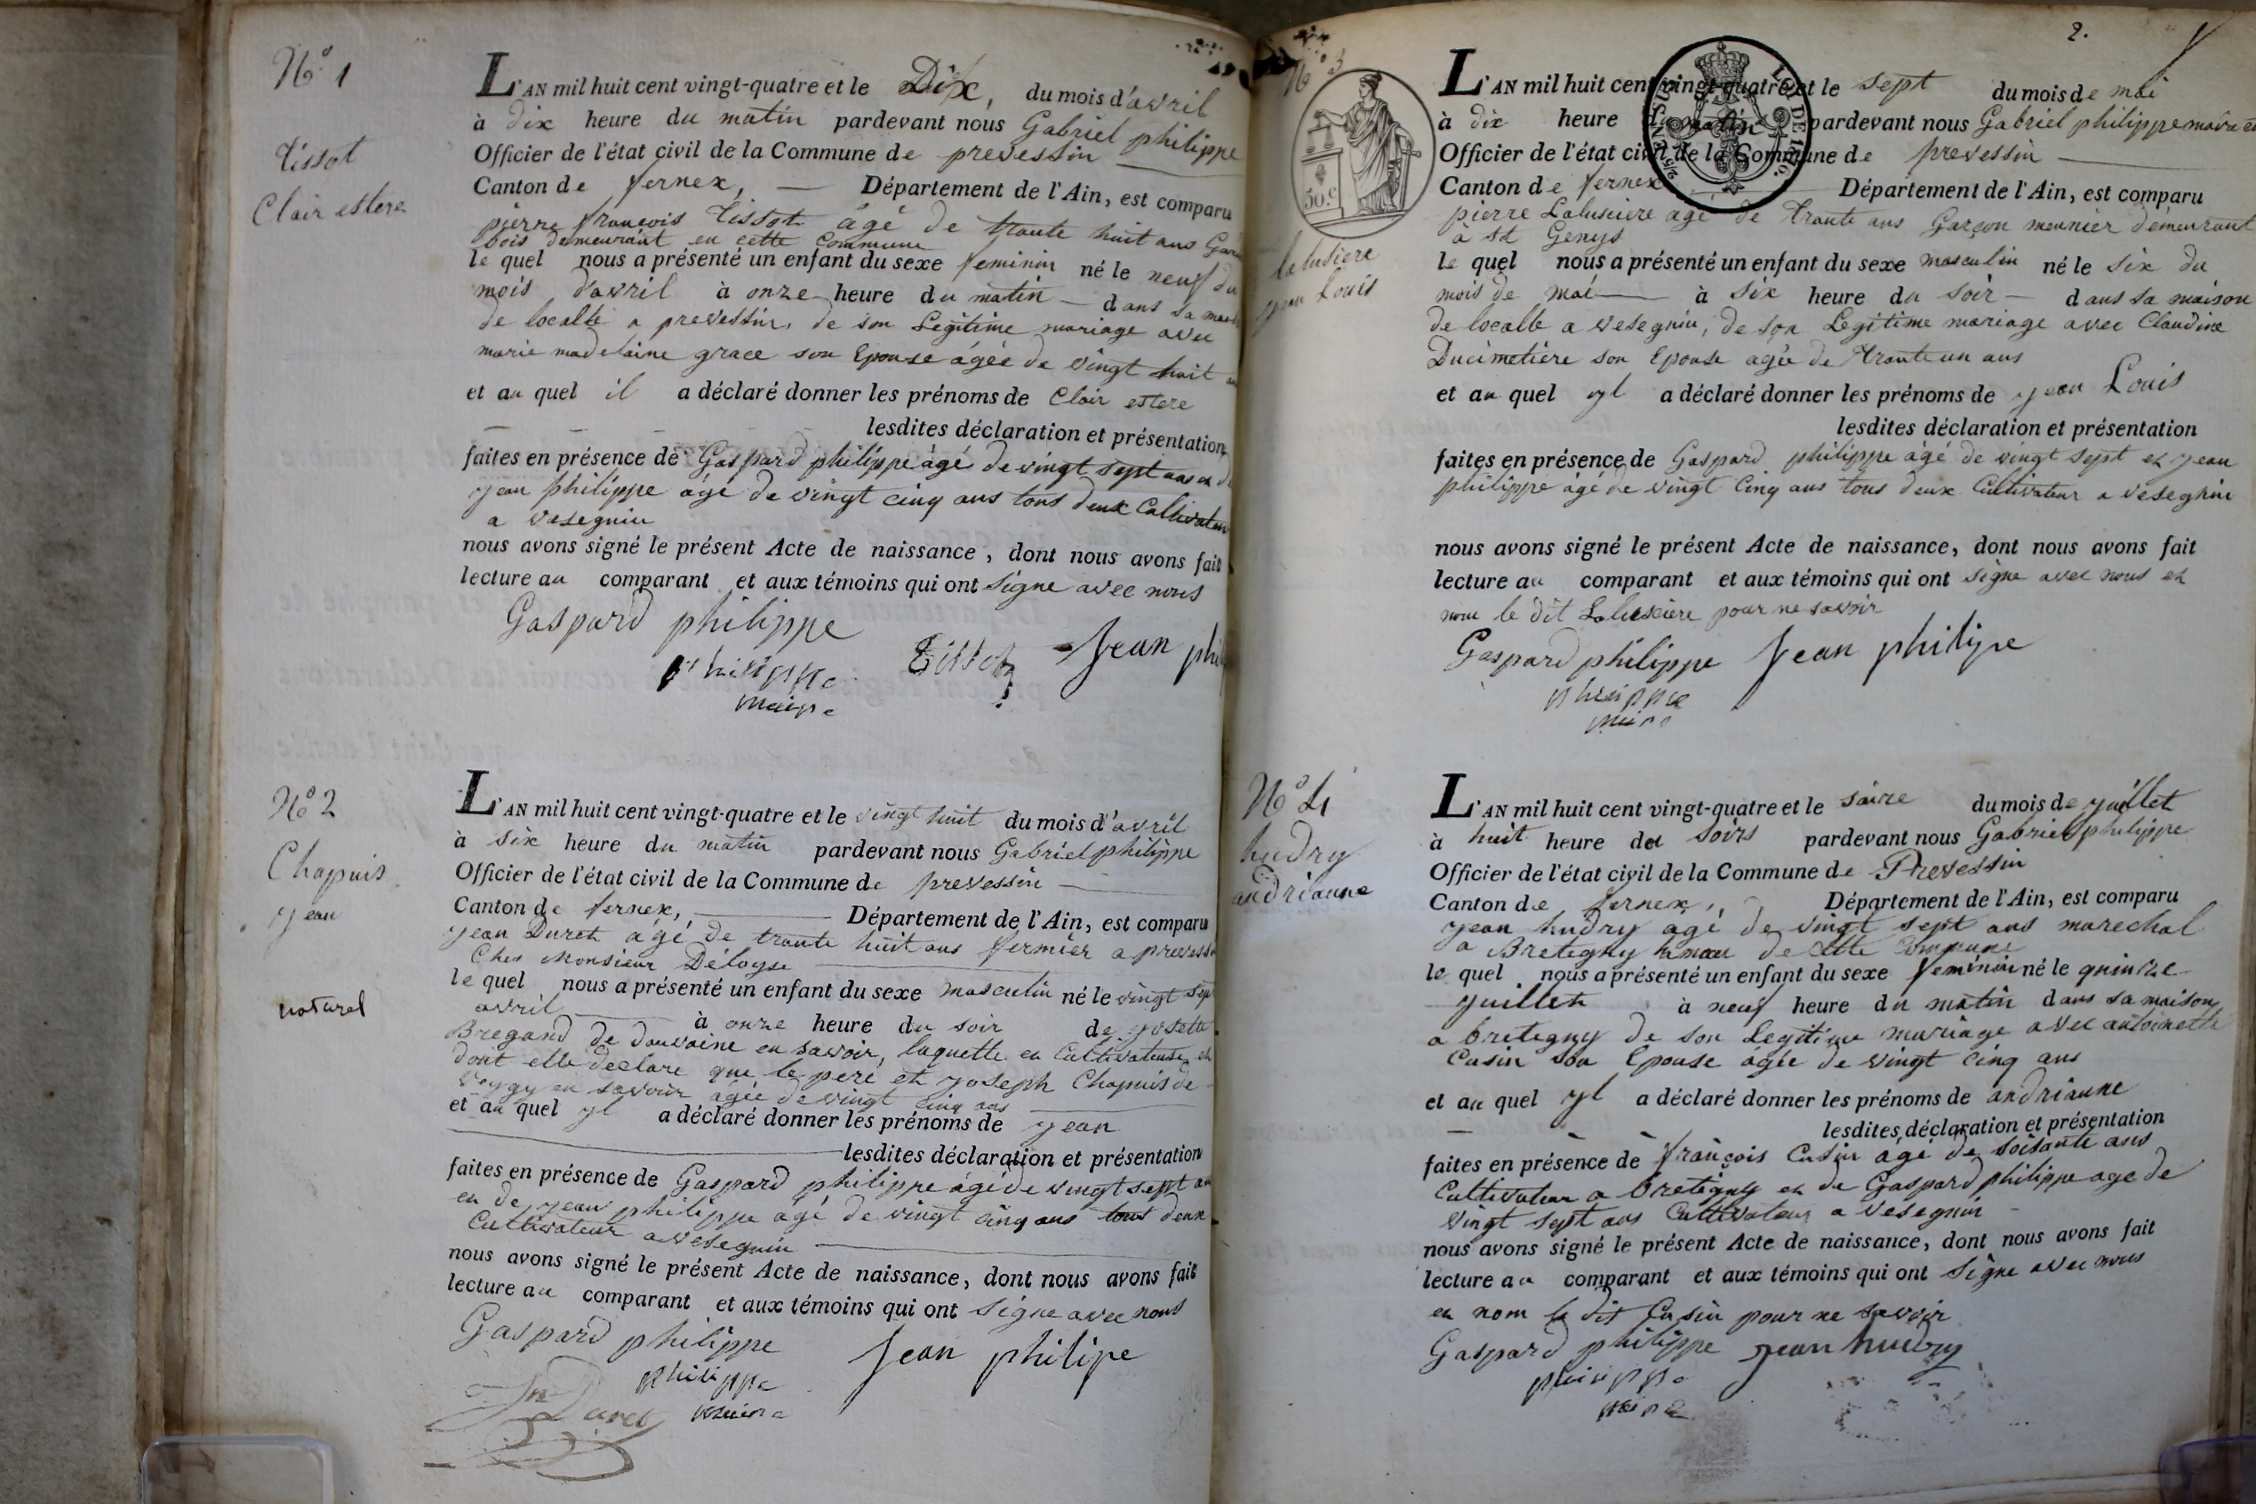 N° 1
Tissot
Clair estere
L'AN mil huit cent vingt-quatre et le Dix, du mois d'avril
à dix heure du matin pardevant nous Gabriel philippe
Officier de l'état civil de la Commune de prevessin
Canton de fernex, Département de l'Ain, est comparu
pierre françois Tissot âgé de trante huit ans Gard
bois demeurant en cette Commune
le quel nous a présenté un enfant du sexe feminin né le neuf du
mois d'avril à onze heure du matin dans sa mais
de localle a prevessin, de son Legitime mariage avec
marie madelaine grace son Epouse âgée de vingt huit
et au quel il a déclaré donner les prénoms de Clair estere
lesdites déclaration et présentation
faites en présence de Gaspard philippe âgé de vingt sept ans et de
jean philippe âgé de vingt cinq ans tous deux Cultivateur
a vesegnin
nous avons signé le présent Acte de naissance, dont nous avons fait
lecture au comparant et aux témoins qui ont signe avec nous
Gaspard philippe
philippe Tissot Jean phil
maire
N° 2
Chapuis
jean
naturel
L'AN mil huit cent vingt-quatre et le vingt huit du mois d'avril
à six heure du matin pardevant nous Gabriel philippe
Officier de l'état civil de la Commune de prevessin
Canton de fernex, Département de l'Ain, est comparu
jean Duret âgé de trante huit ans fermier a prevess
Ches Monsieur Déloyse
le quel nous a présenté un enfant du sexe masculin né le vingt sep
avril à onze heure du soir de josette
Bregand de douvaine en savoir, laquelle en Cultivateuse et
dont elle declare que le peré et joseph Chapuis de
en savoir âgée de vingt cinq ans
et au quel yl a déclaré donner les prénoms de jean
lesdites déclaration et présentation
faites en présence de Gaspard philippe âgé de vingt sept an
et de jean philippe âgé de vingt cinq ans tous deux
Cultivateur a vesegnin
nous avons signé le présent Acte de naissance, dont nous avons fait
lecture au comparant et aux témoins qui ont signe avec nous
Gaspard philippe Jean philipe
philippe
Duret maire
2.
N° 3
50.c
LOI DE 1816.
lalusiere
jean Louis
L'AN mil huit cent vingt-quatre et le sept du mois de mai
à dix heure du matin pardevant nous Gabriel philippe maire et
Officier de l'état civil de la Commune de prevessin
Canton de fernex Département de l'Ain, est comparu
pierre Lalusiere agé de trante ans Garçon meunier demeurant
à st Genys
le quel nous a présenté un enfant du sexe masculin né le six du
mois de mai à six heure du soir dans sa maison
de localle a vesegnin, de son Legitime mariage avec Claudine
Ducimetiére son Epouse agée de tranteun ans
et au quel yl a déclaré donner les prénoms de jean Louis
lesdites déclaration et présentation
faites en présence de Gaspard philippe âgé de vingt sept et jean
philippe âgé de vingt Cinq ans tous deux Cultivateur a veseghin
nous avons signé le présent Acte de naissance, dont nous avons fait
lecture au comparant et aux témoins qui ont signe avec nous et
nom le dit Lalusiere pour ne savoir
Gaspard philippe Jean philipe
philippe
maire
N° 4
hudry
andrianne
L'AN mil huit cent vingt-quatre et le saize du mois de juillet
à huit heure du soirs pardevant nous Gabriel philippe
Officier de l'état civil de la Commune de Prevessin
Canton de fernex, Département de l'Ain, est comparu
jean hudry agé de vingt sept ans marechal
a Bretigny hameau de cette Commune
le quel nous a présenté un enfant du sexe feminin né le quinze
juillet à neuf heure du matin dans sa maison
a bretigny de son Legitime mariage avec antoinette
Cusin son Epouse âgée de vingt cinq ans
et au quel yl a déclaré donner les prénoms de andrianne
lesdites déclaration et présentation
faites en présence de françois Cusin âgé de soisante ans
Cultivateur a bretigny et de Gaspard philippe age de
vingt sept ans Cultivateur a vesegnin
nous avons signé le présent Acte de naissance, dont nous avons fait
lecture au comparant et aux témoins qui ont signe avec nous
et nom le dit Cusin pour ne savoir
Gaspard philippe jean hudry
philippe
maire